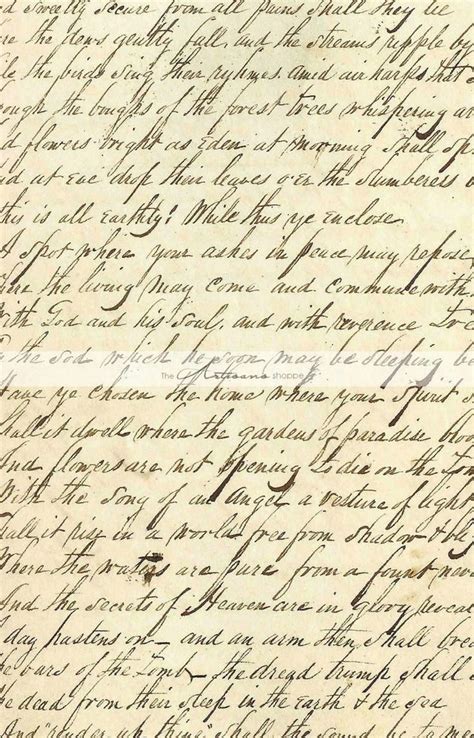 d Sweetly secure from all pains shall they lie
re the dews gently fall, and the streams ripple by
le the birds sing their rhymes amid air harps that
rough the boughs of the forest trees whispering ar
d flowers bright as Eden at morning shall sp
nd at Eve drop their leaves o'er the slumberers
this is all Earthly! While thus ye enclose
A Spot where your ashes in peace may repose
ere the living may come and commune with
With God and his Soul, and with reverence
the sod which he soon may be sleeping be
The Artisans shoppe
Have ye chosen the home where your Spirit s
Shall it dwell where the gardens of paradise bloo
And flowers are not opening to die on the Tom
With the Song of an Angel a vesture of light
Shall it rise in a world free from shadow &
Where the waters are pure from a fount neve
And the secrets of Heaven are in glory reveal
day hastens on — and an arm then shall brea
he bars of the Tomb — the dread trump shall
he dead from their sleep in the Earth & the Sea
And "render up thing" shall the sound be to